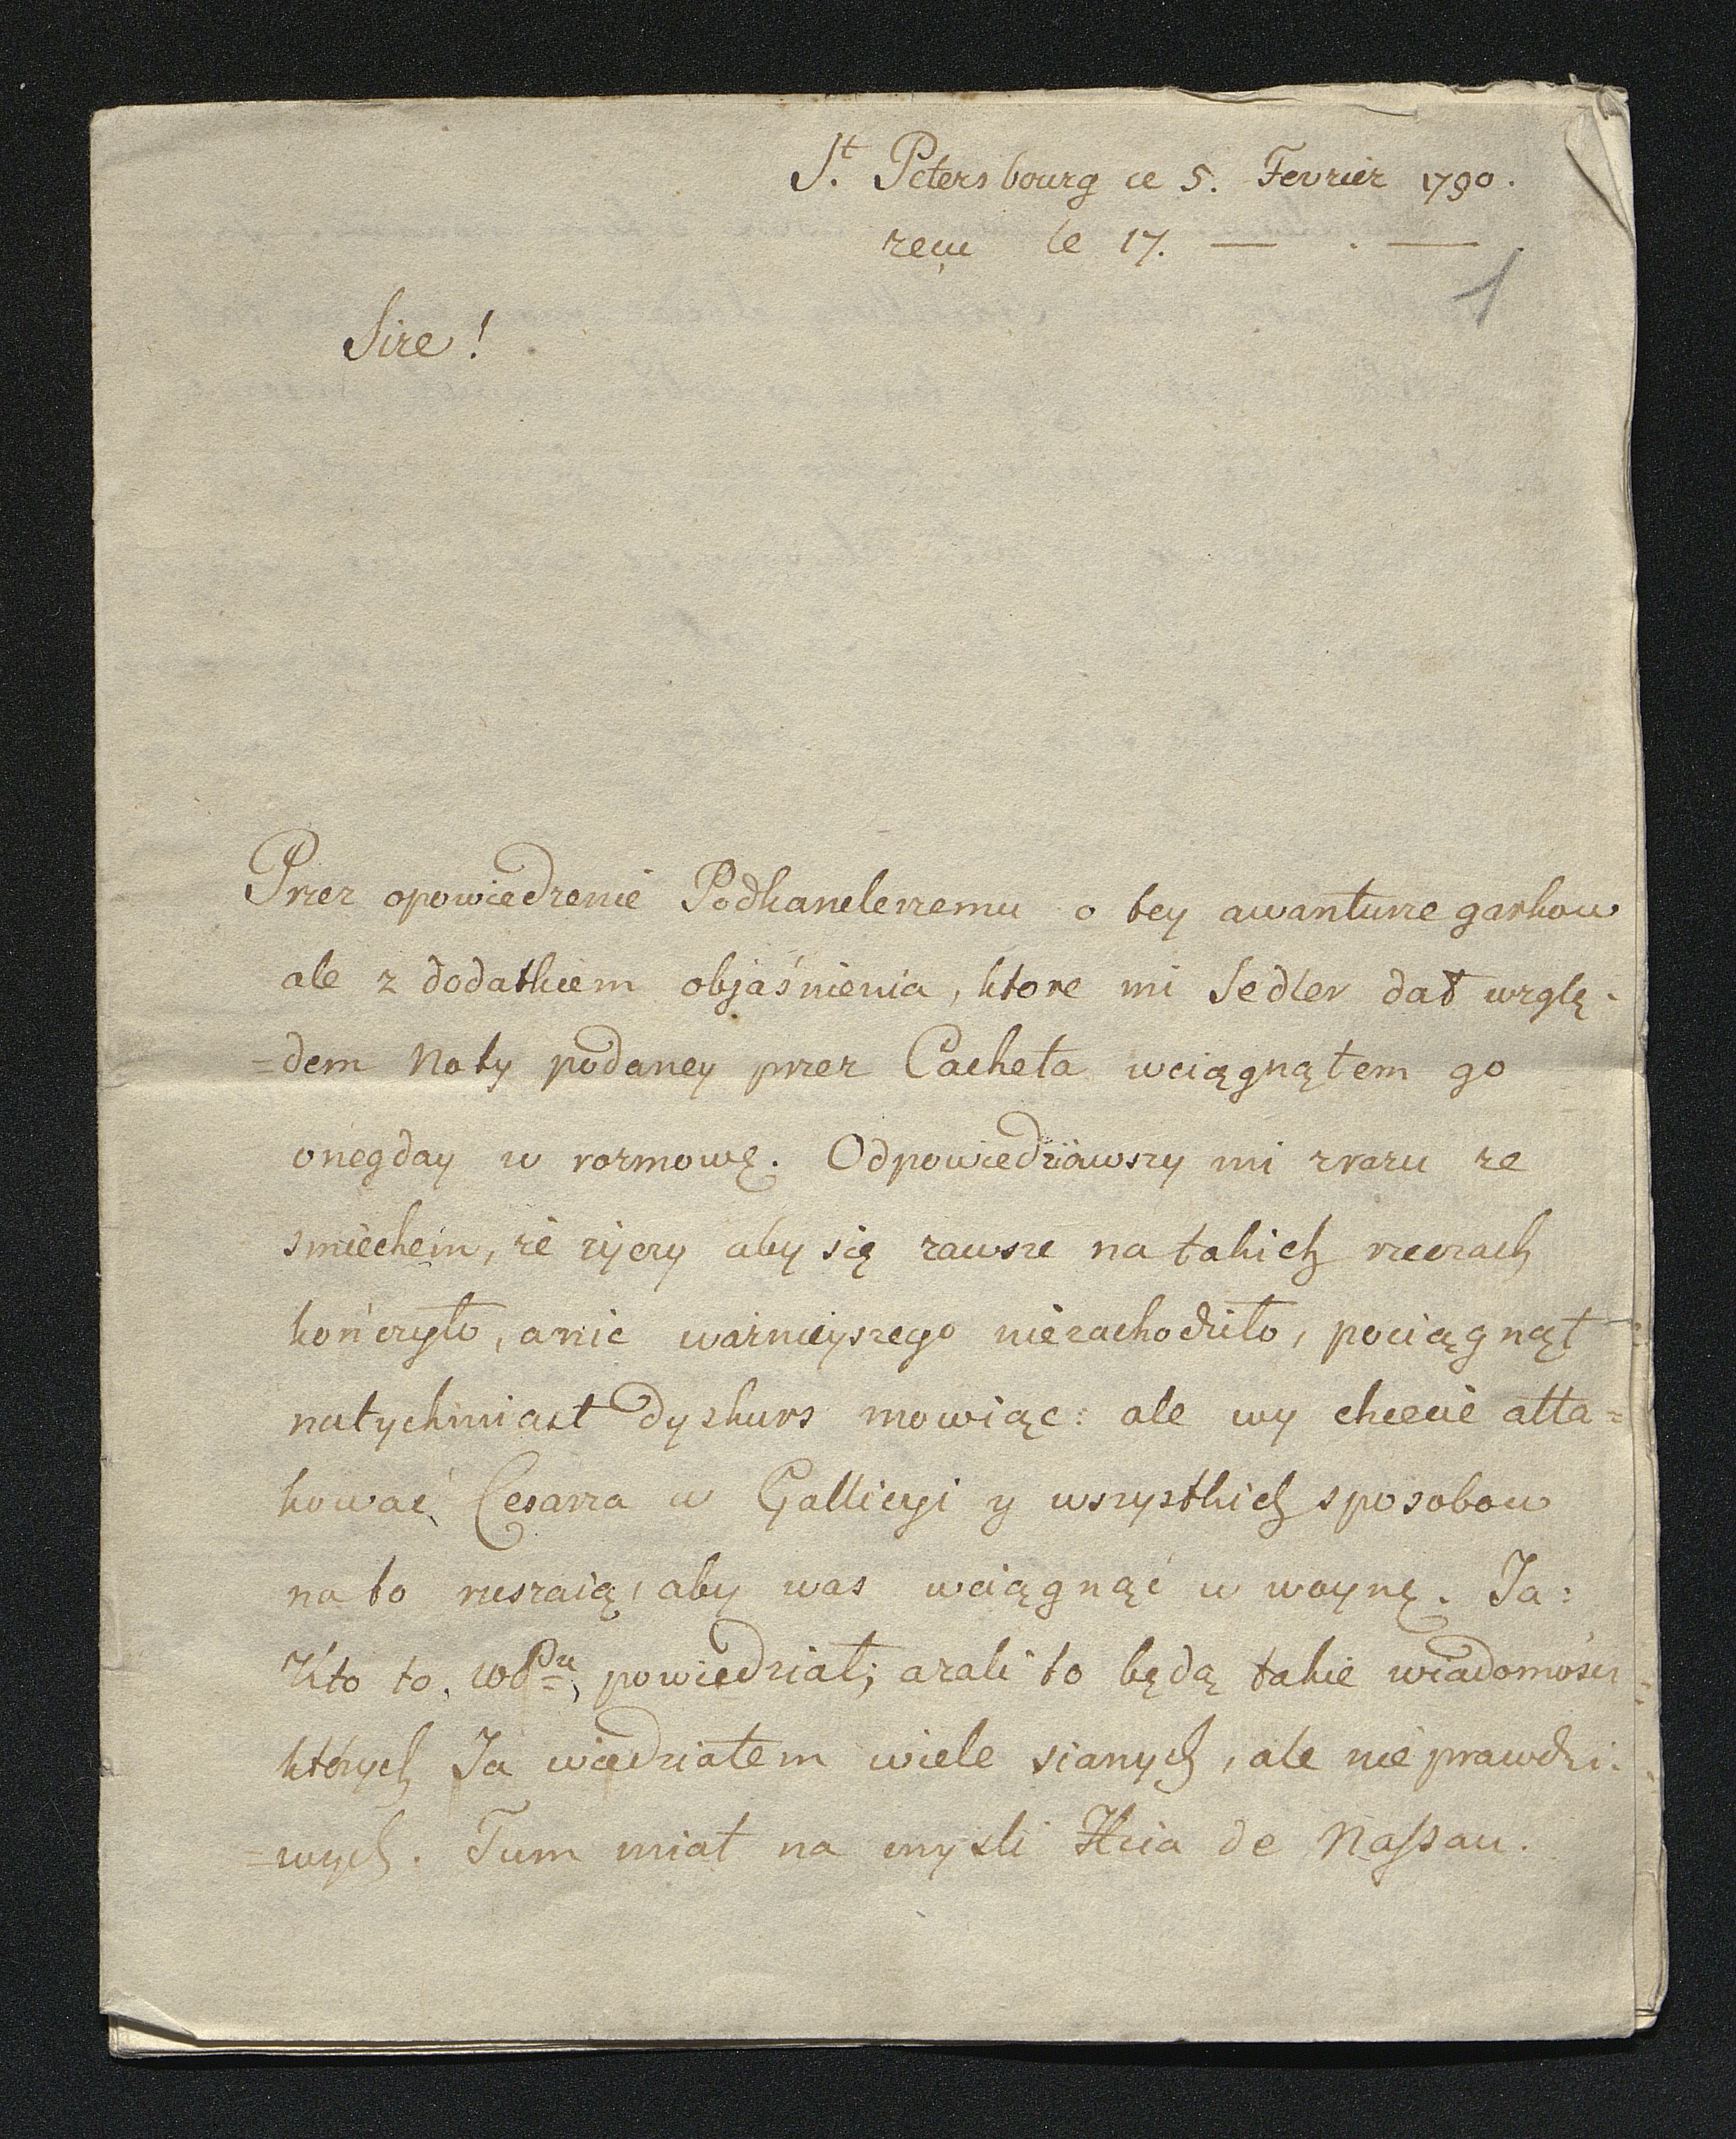 St. Petersbourg ce 5. Fevrier 1790.
reçu le 17. — . —
1
Sire!
Przez opowiedzenie Podkanclerzemu o tey awanturze garkow
ale z dodatkiem objaśnienia, ktore mi Sedler dał wzglę-
=dem Noty podaney przez Cacheta wciągnąłem go
onegday w rozmowę. Odpowiedziawszy mi zrazu ze
smiechem, że życzy aby się zawsze na takich rzeczach
kończyło, a nic ważnieyszego niezachodziło, pociągnął
natychmiast dyskurs mowiąc: ale wy chcecie atta=
kować Cesarza w Galliczyi y wszystkich sposobow
na to ruszaią, aby was wciągnąć w woynę. Ja:
Kto to WPu powiedział; azali to będą takie wiadomości
których Ja wiedziałem wiele sianych, ale nie prawdzi-
=wych. Tum miał na mysli Xcia de Nassau.